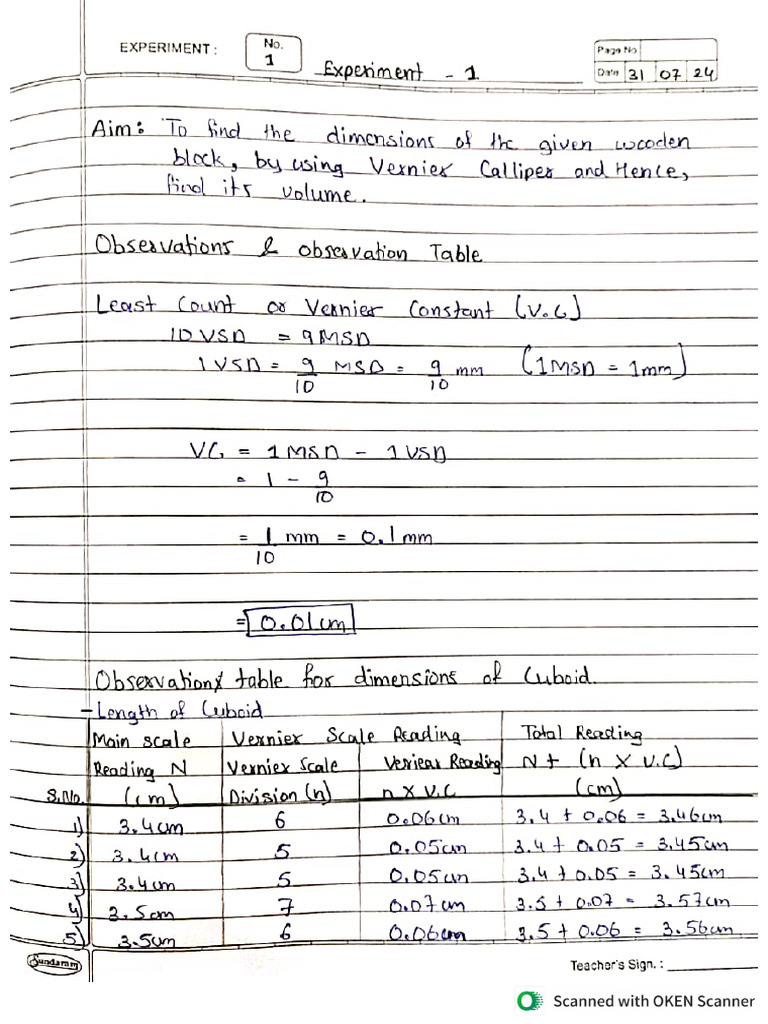 EXPERIMENT : No. 1 Experiment - 1 Page No
Date 31 07 24
Aim: To find the dimensions of the given wooden
block, by using Vernier Calliper and Hence,
find its volume.
Observations & observation Table
Least Count or Vernier Constant (V.C)
10 VSD = 9 MSD
1 VSD = 9/10 MSD = 9/10 mm (1 MSD = 1mm)
VC = 1 MSD - 1 VSD
= 1 - 9/10
= 1/10 mm = 0.1 mm
= 0.01cm
Observation table for dimensions of Cuboid.
- Length of Cuboid
Main scale Vernier Scale Reading Total Reading
Reading N Vernier Scale Verniear Reading N + (n X V.C)
S.No. (cm) Division (n) n X V.C (cm)
1) 3.4cm 6 0.06cm 3.4 + 0.06 = 3.46cm
2) 3.4cm 5 0.05cm 3.4 + 0.05 = 3.45cm
3) 3.4cm 5 0.05cm 3.4 + 0.05 = 3.45cm
4) 3.5cm 7 0.07cm 3.5 + 0.07 = 3.57cm
5) 3.5cm 6 0.06cm 3.5 + 0.06 = 3.56cm
Sundaram Teacher's Sign. :
Scanned with OKEN Scanner